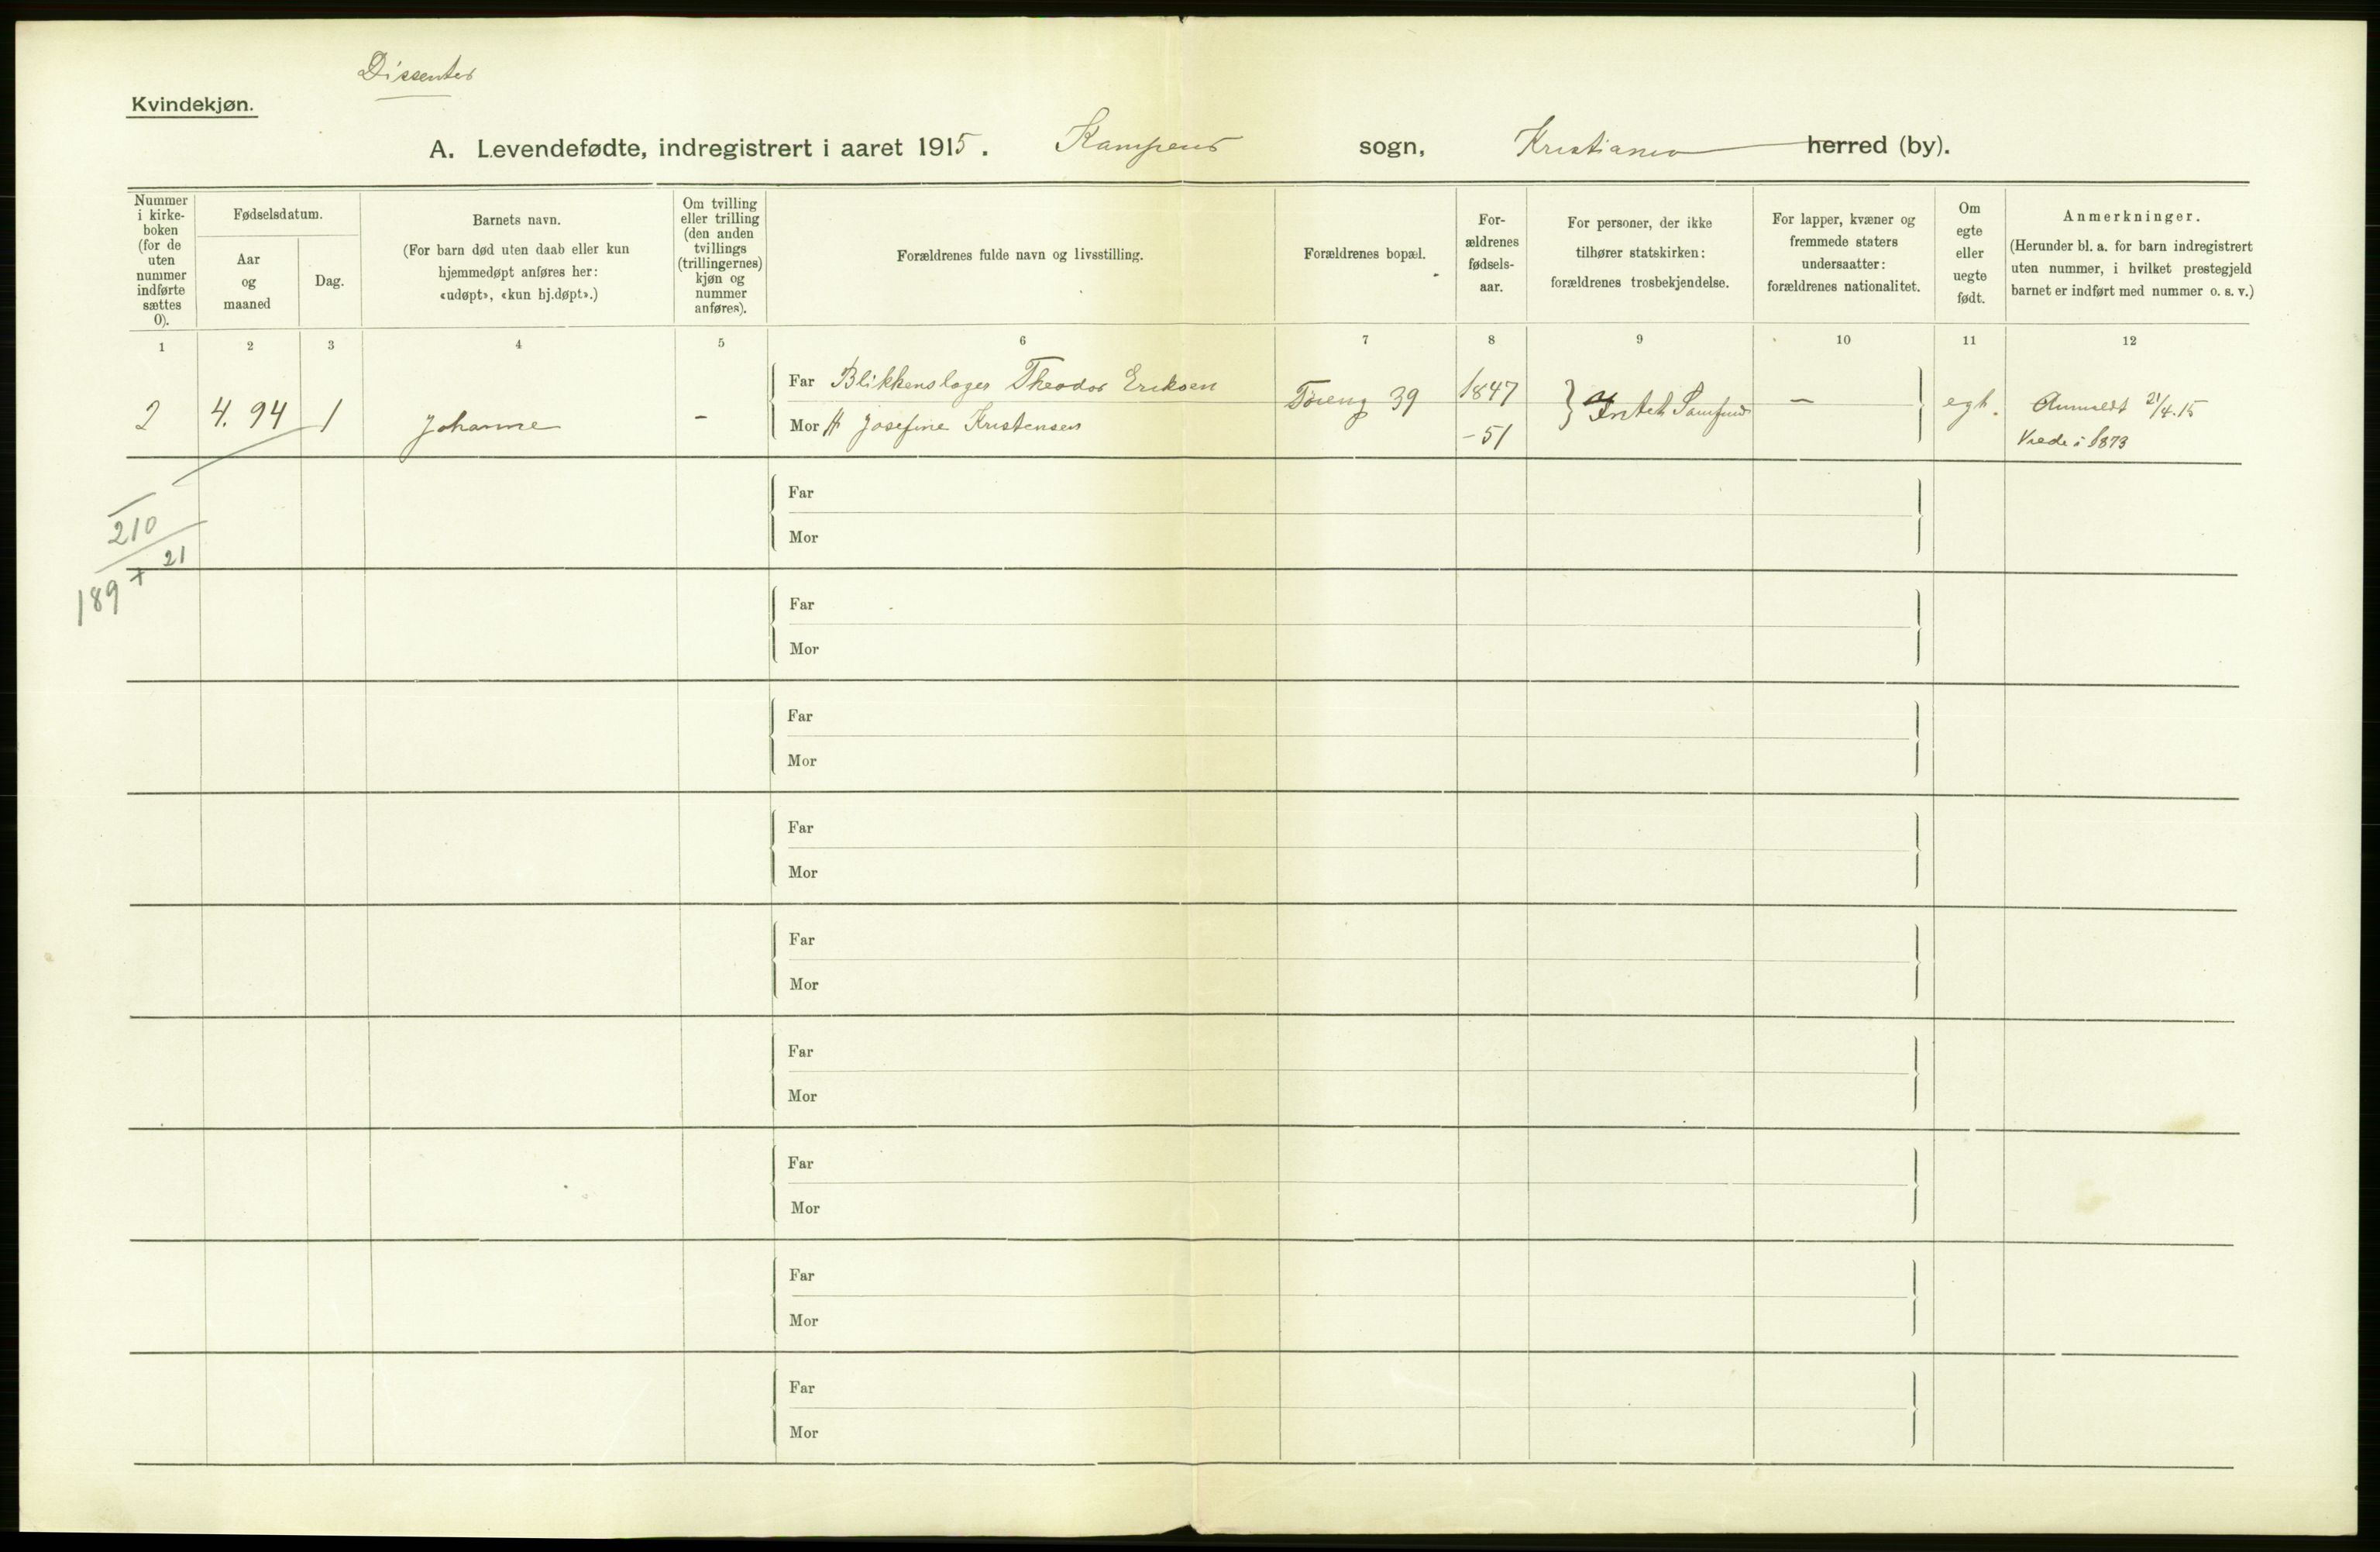 Dissenter
Kvindekjøn.
A. Levendefødte, indregistrert i aaret 1915. Kampens sogn, Kristiania herred (by).
Nummer i kirke-boken (for de uten nummer indførte sættes 0).
Fødselsdatum.
Aar og maaned
Dag.
Barnets navn.
(For barn død uten daab eller kun hjemmedøpt anføres her: «udøpt», «kun hj.døpt».)
Om tvilling eller trilling (den anden tvillings (trillingernes) kjøn og nummer anføres).
Forældrenes fulde navn og livsstilling.
Forældrenes bopæl.
For-ældrenes fødsels-aar.
For personer, der ikke tilhører statskirken: forældrenes trosbekjendelse.
For lapper, kvæner og fremmede staters undersaatter: forældrenes nationalitet.
Om egte eller uegte født.
Anmerkninger.
(Herunder bl. a. for barn indregistrert uten nummer, i hvilket prestegjeld barnet er indført med nummer o. s. v.)
1 2 3 4 5 6 7 8 9 10 11 12
Far Blikkenslager Theodor Eriksen 1847
2 4. 94 1 Johanne - Tøieng 39 } Intet Samfund - egt. Anmeldt 21/4.15
Mor H Josefine Kristensen -51 Viede i 1873
Far
210
Mor
21
189 +
Far
Mor
Far
Mor
Far
Mor
Far
Mor
Far
Mor
Far
Mor
Far
Mor
Far
Mor